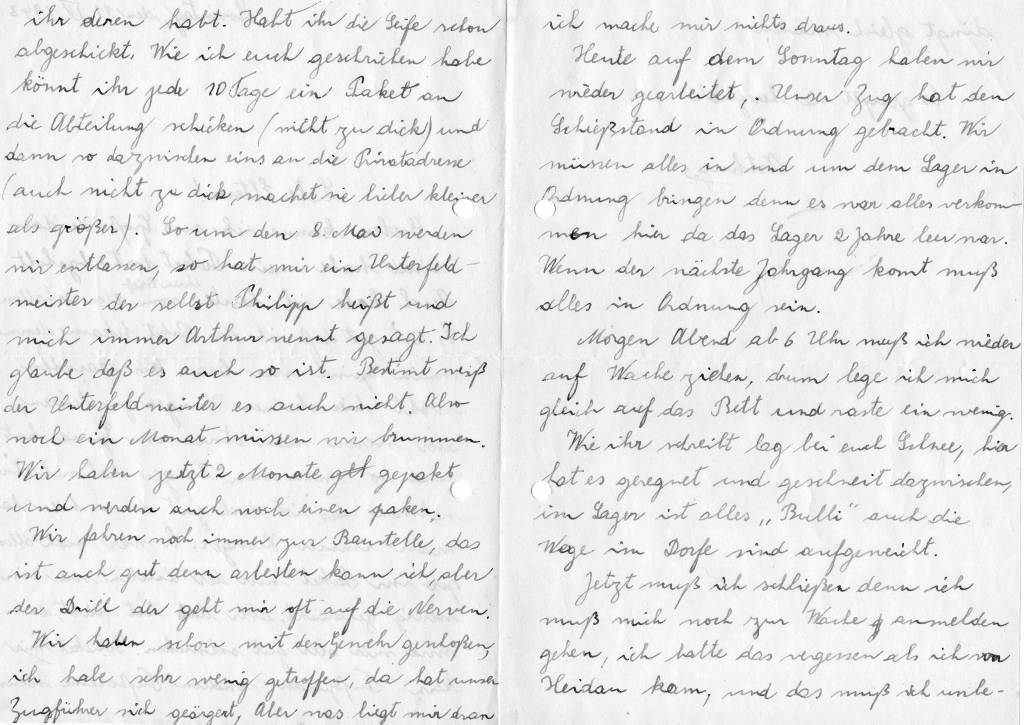 ihr deren habt. Habt ihr die Seife schon
abgeschickt. Wie ich euch geschrieben habe
könnt ihr jede 10 Tage ein Paket an
die Abteilung schicken (nicht zu dick) und
dann so dazwischen eins an die Privatadresse
(auch nicht zu dick, machet sie lieber kleiner
als größer). So um den 8. Mai werden
wir entlassen, so hat mir ein Unterfeld-
meister der selbst Philipp heißt und
mich immer Arthur nennt gesagt. Ich
glaube daß es auch so ist. Bestimt weiß
der Unterfeldmeister es auch nicht. Also
noch ein Monat müssen wir brummen.
Wir haben jetzt 2 Monate gepakt
und werden auch noch einen paken.
Wir fahren noch immer zur Baustelle, das
ist auch gut denn arbeiten kann ich, aber
der Drill der geht mir oft auf die Nerven.
Wir haben schon mit den Gewehr geschoßen,
ich habe sehr wenig getroffen, da hat unser
Zugführer sich geärgert, Aber was liegt mir dran
ich mache mir nichts draus.
Heute auf dem Sonntag haben wir
wieder gearbeitet,. Unser Zug hat den
Schießstand in Ordnung gebracht. Wir
müssen alles in und um dem Lager in
Ordnung bringen denn es war alles verkom-
men hier da das Lager 2 Jahre leer war.
Wenn der nächste Jahrgang komt muß
alles in Ordnung sein.
Morgen Abend ab 6 Uhr muß ich wieder
auf Wache ziehen, drum lege ich mich
gleich auf das Bett und raste ein wenig.
Wie ihr schreibt lag bei euch Schnee, hier
hat es geregnet und geschneit dazwischen,
im Lager ist alles „Bulli“ auch die
Wege im Dorfe sind aufgeweicht.
Jetzt muß ich schließen denn ich
muß mich noch zur Wache anmelden
gehen, ich hatte das vergessen als ich von
Heidau kam, und das muß ich unbe-